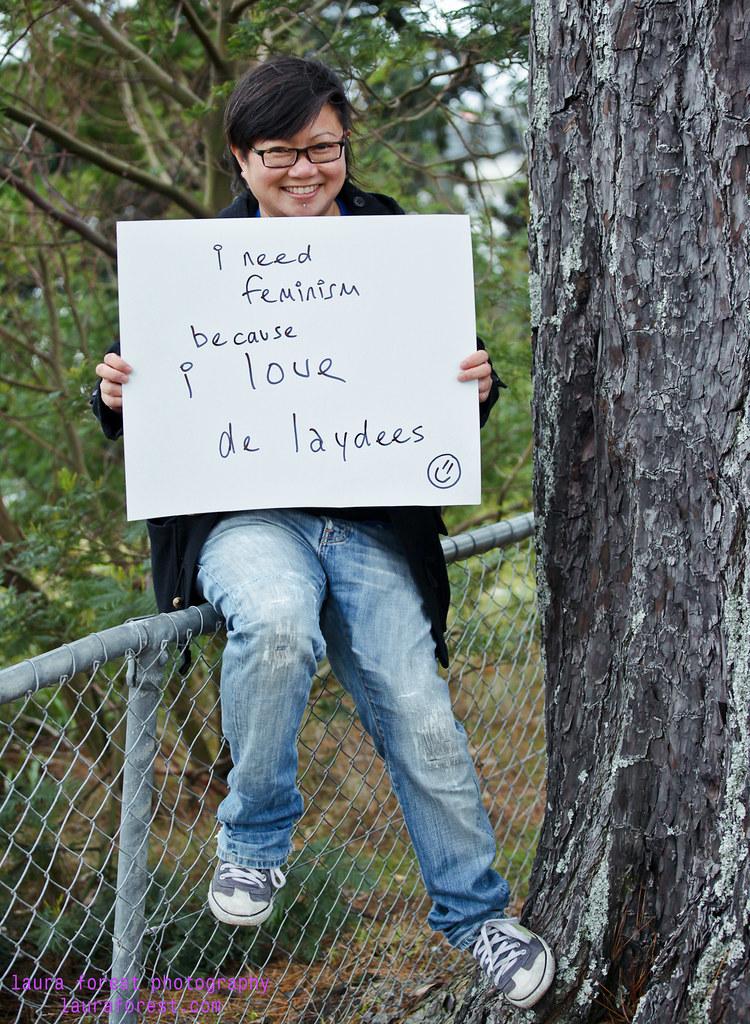 i need
feminism
because
i love
de laydees
laura forest photography
lauraforest.com